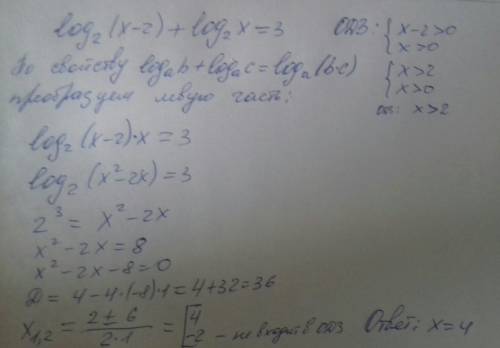 log₂(x-2)+log₂x=3 ОДЗ: { x-2>0
x>0
По свойству logₐb+logₐc=logₐ(b·c) { x>2
x>0
преобразуем левую часть: x>2
log₂(x-2)·x=3
log₂(x²-2x)=3
2³ = x²-2x
x²-2x=8
x²-2x-8=0
D = 4-4·(-8)·1=4+32=36
x₁,₂ = (2±6)/(2·1) = [ 4
-2 - не входит в ОДЗ Ответ: x=4